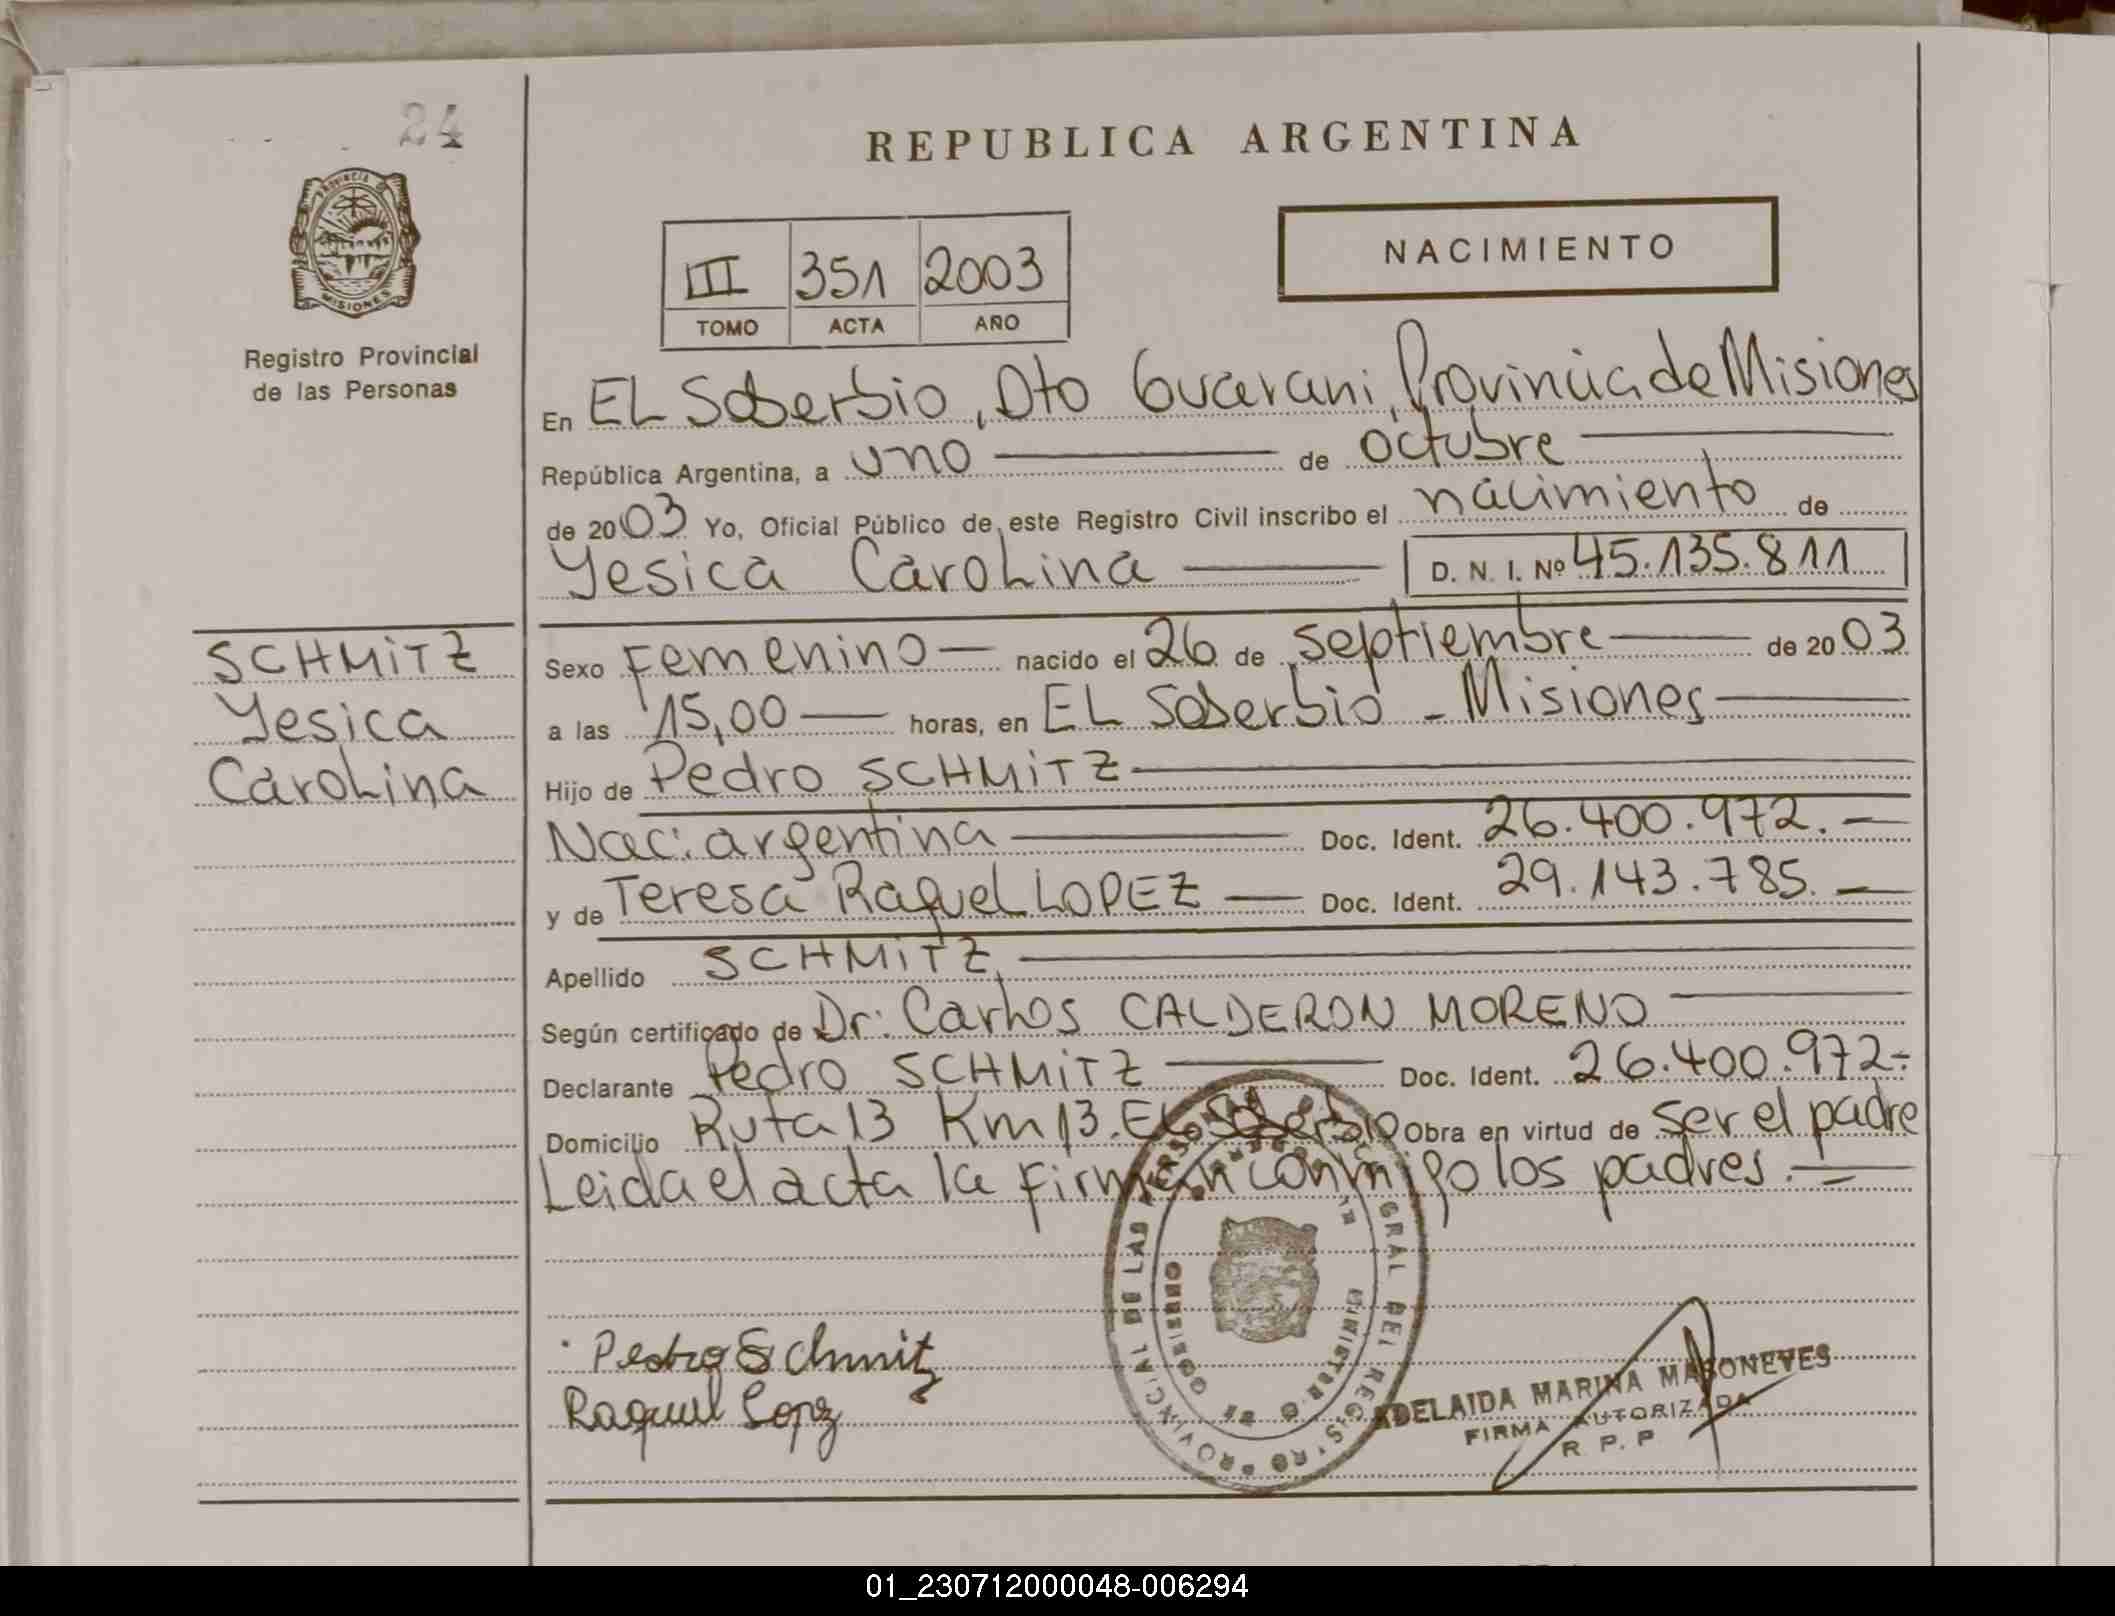 24
REPUBLICA ARGENTINA
PROVINCIA D
MISIONES
Registro Provincial
de las Personas
NACIMIENTO
III 351 2003
TOMO ACTA AÑO
En EL Soberbio, Dto Guarani, Provincia de Misiones
República Argentina, a uno de octubre
de 2003 Yo, Oficial Público de este Registro Civil inscribo el nacimiento de
Yesica Carolina D. N. I. Nº 45.135.811
SCHMITZ
Yesica
Carolina
Sexo Femenino nacido el 26 de septiembre de 2003
a las 15,00 horas, en EL Soberbio - Misiones
Hijo de Pedro SCHMITZ
Nac: argentina Doc. Ident. 26.400.972.
y de Teresa Raquel LOPEZ Doc. Ident. 29.143.785.
Apellido SCHMITZ
Según certificado de Dr: Carlos CALDERON MORENO
Declarante Pedro SCHMITZ Doc. Ident. 26.400.972.-
Domicilio Ruta 13 Km 13. EL Soberbio Obra en virtud de ser el padre
Leida el acta la firman conmigo los padres.
Pedro Schmitz
Raquel Lopez
PROVINCIAL DE LAS GRAL DEL REGISTRO
GOBIERNO
MINISTERIO DE
ADELAIDA MARINA MASONEVES
FIRMA AUTORIZADA
R. P. P
01_230712000048-006294